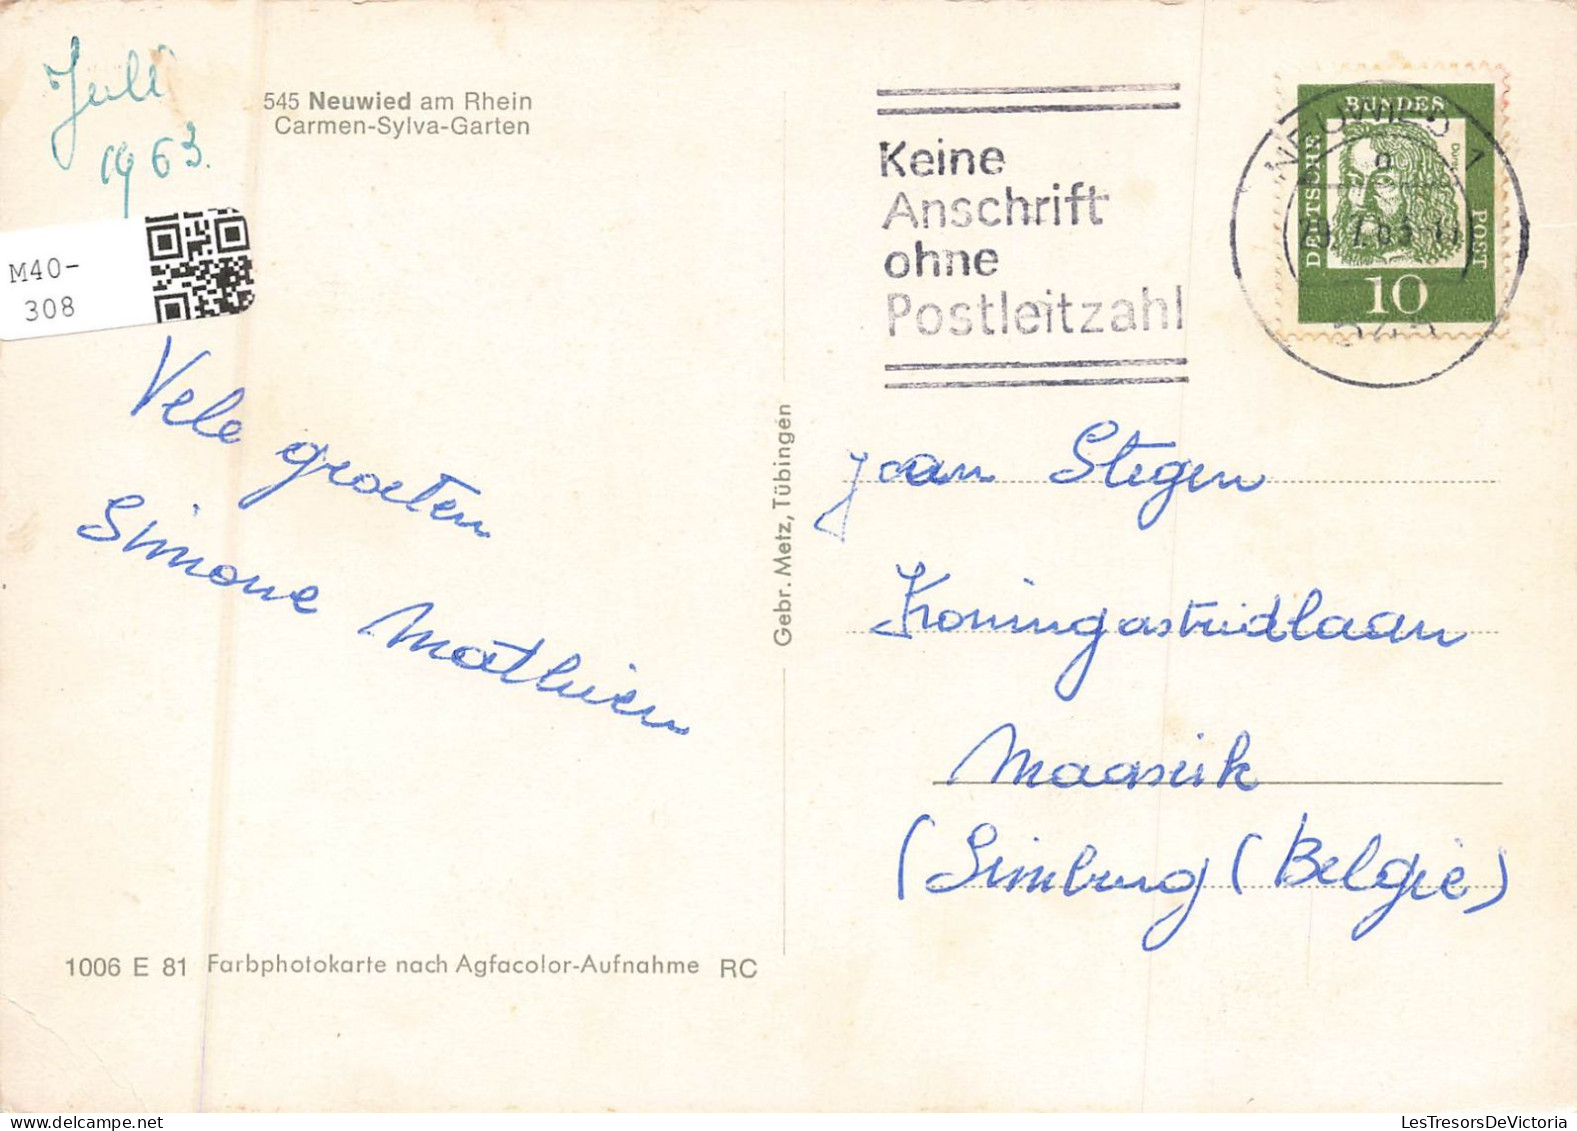 Juli
1963.
545 Neuwied am Rhein
Carmen-Sylva-Garten
M40-
308
Vele groeten
Simone Mathieu
1006 E 81 Farbphotokarte nach Agfacolor-Aufnahme RC
Gebr. Metz, Tübingen
Keine
Anschrift
ohne
Postleitzahl
NEUWIED 1
DEUTSCHE BUNDES POST
10
Jaan Stegen
Koningastridlaan
Maaseik
(Limburg (Belgie)
LesTresorsDeVictoria.com